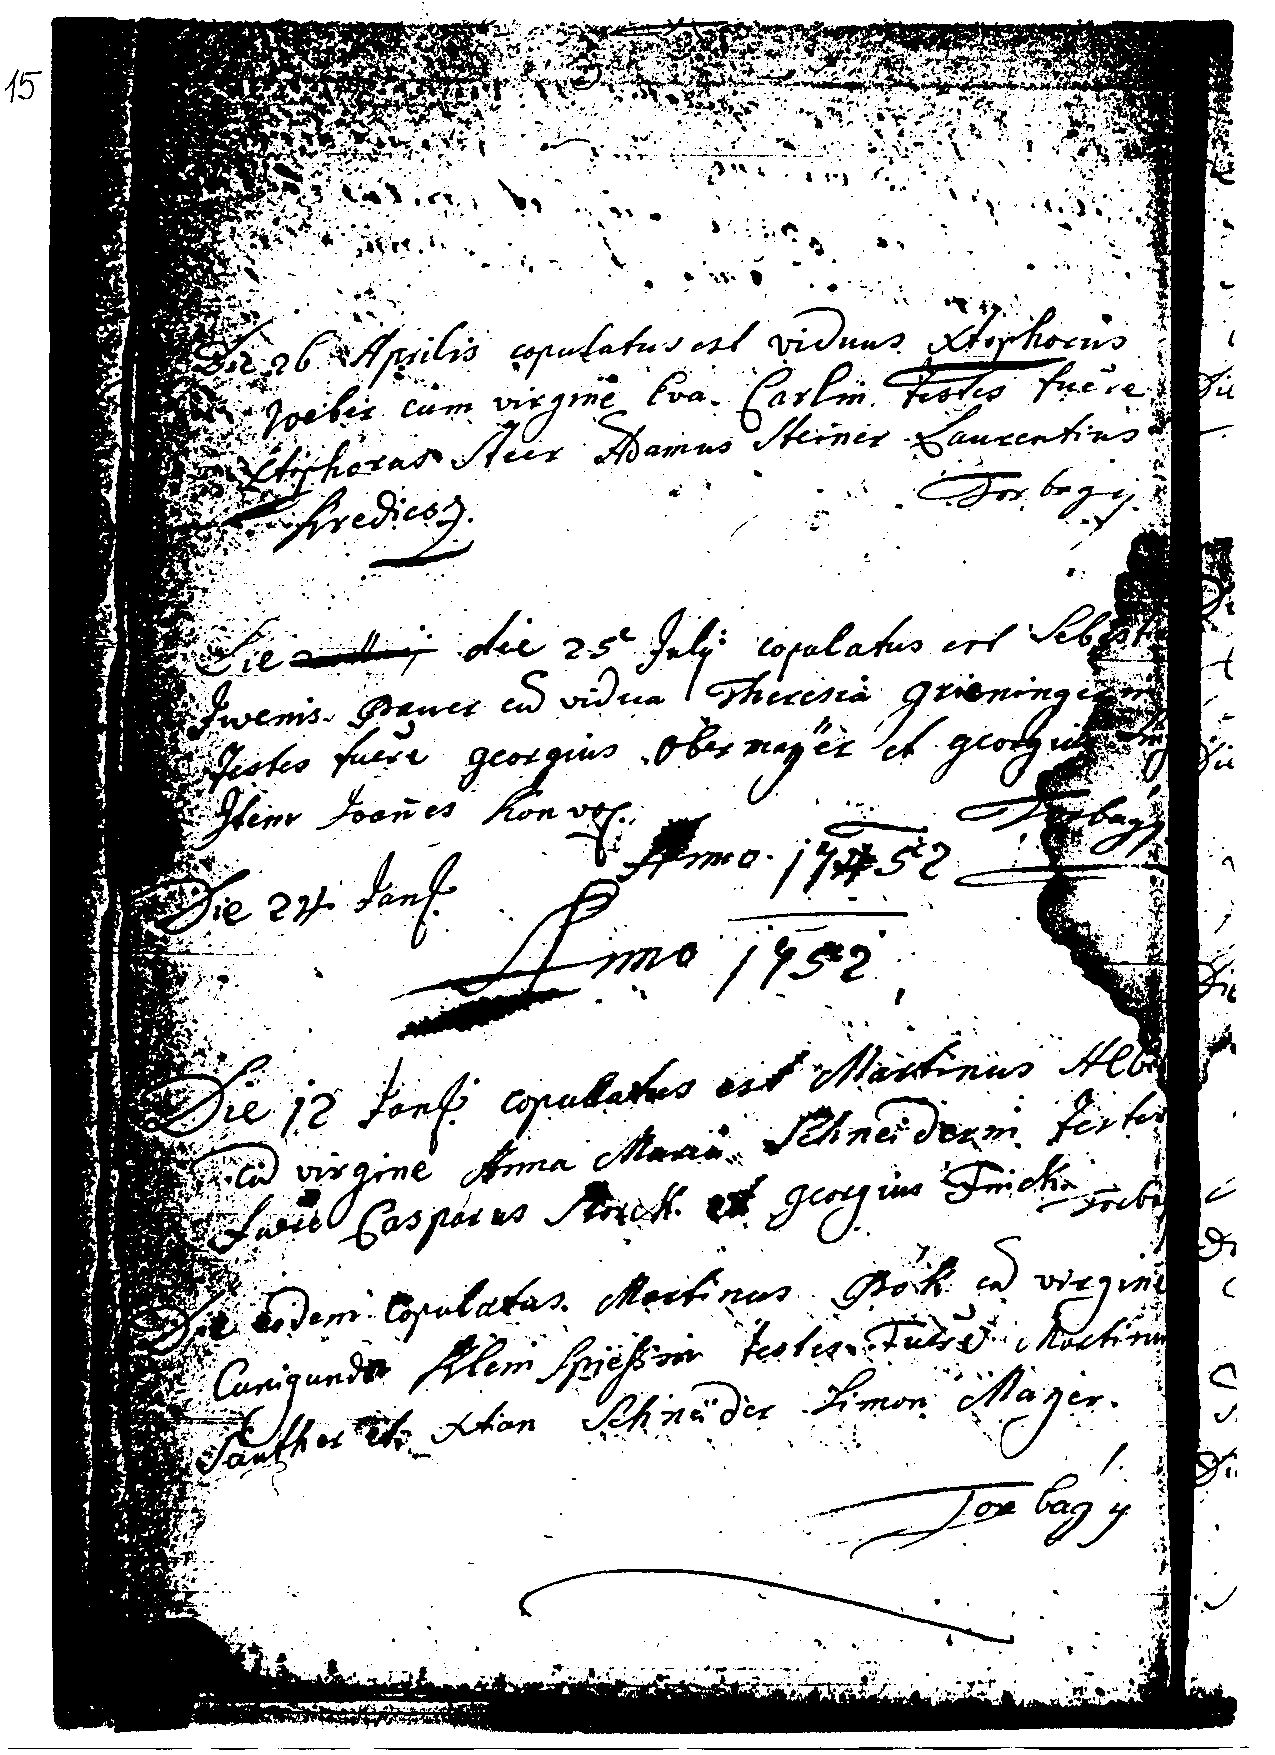 15
Die 26 Aprilis copulatus est viduus Xtophorus
Weber cum virgine Eva Carlin. Testes fuere
Xtophorus Steer Adamus Steiner Laurentius
Torbagÿ.
Kredics.
Die die 25 Julÿ copulatus est Sebast
Juvenis Bauer cū vidua Theresia Grieninger
Testes fuere Georgius Obermaÿer et Georgius
Item Joañes Torbagÿ
Anno 1752
Die 24 Jan
Anno 1752
Die 12 Jan copulatus est Martinus Alb
cū virgine Anna Maria Schneiderin Testes
fuere Casparus Storck et Georgius Torba
Die eodem Copulatus Martinus Bök cū virgine
Cunigunda Klein Spiessin testes fuere Martinus
Sauther et Xtian Schneider Simon Mayer.
Torbagÿ